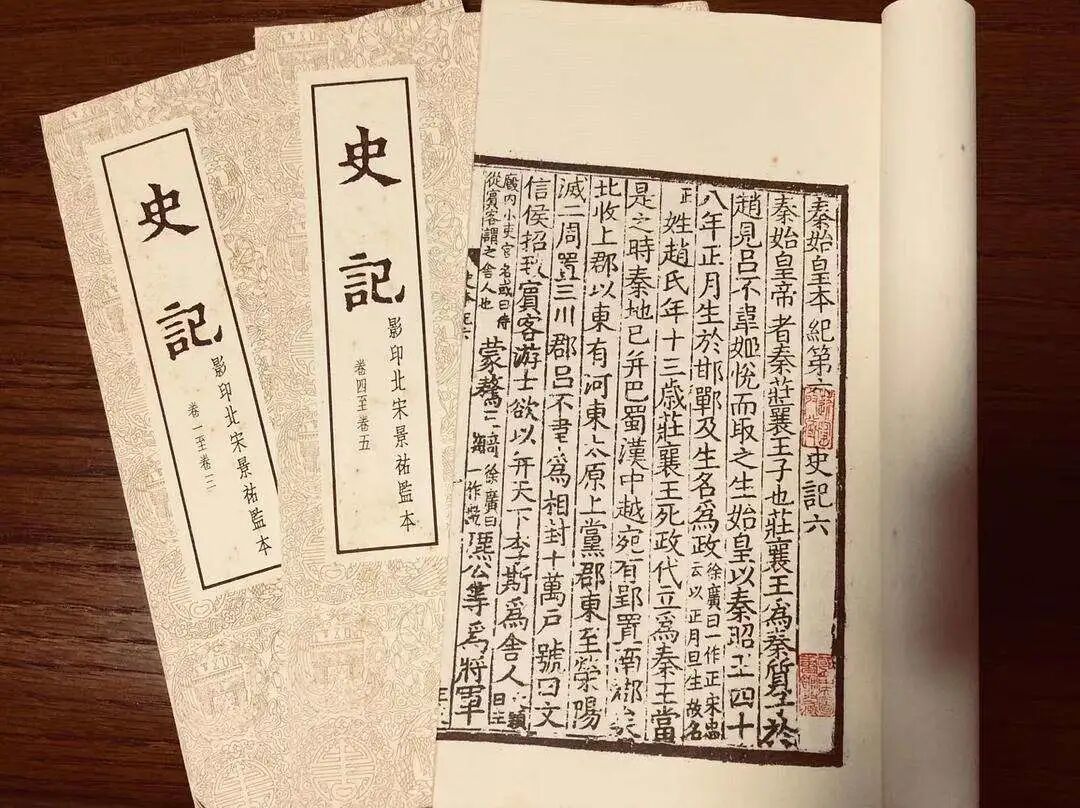 史記
影印北宋景祐監本
卷一至卷三
史記
影印北宋景祐監本
卷四至卷五
秦始皇本紀第六 史記六
秦始皇帝者秦莊襄王子也莊襄王爲秦質子於
趙見呂不韋姬悅而取之生始皇以秦昭王四十
八年正月生於邯鄲及生名爲政徐廣曰一作正宋忠
云以正月旦生故名
正姓趙氏年十三歲莊襄王死政代立爲秦王當
是之時秦地已并巴蜀漢中越宛有郢置南郡矣
北收上郡以東有河東太原上黨郡東至滎陽
滅二周置三川郡呂不韋爲相封十萬戶號曰文
信侯招致賓客游士欲以并天下李斯爲舍人
廄内小吏官名或曰侍
從賓客謂之舍人也
蒙驁王齮徐廣曰
一作
麃公等爲將軍